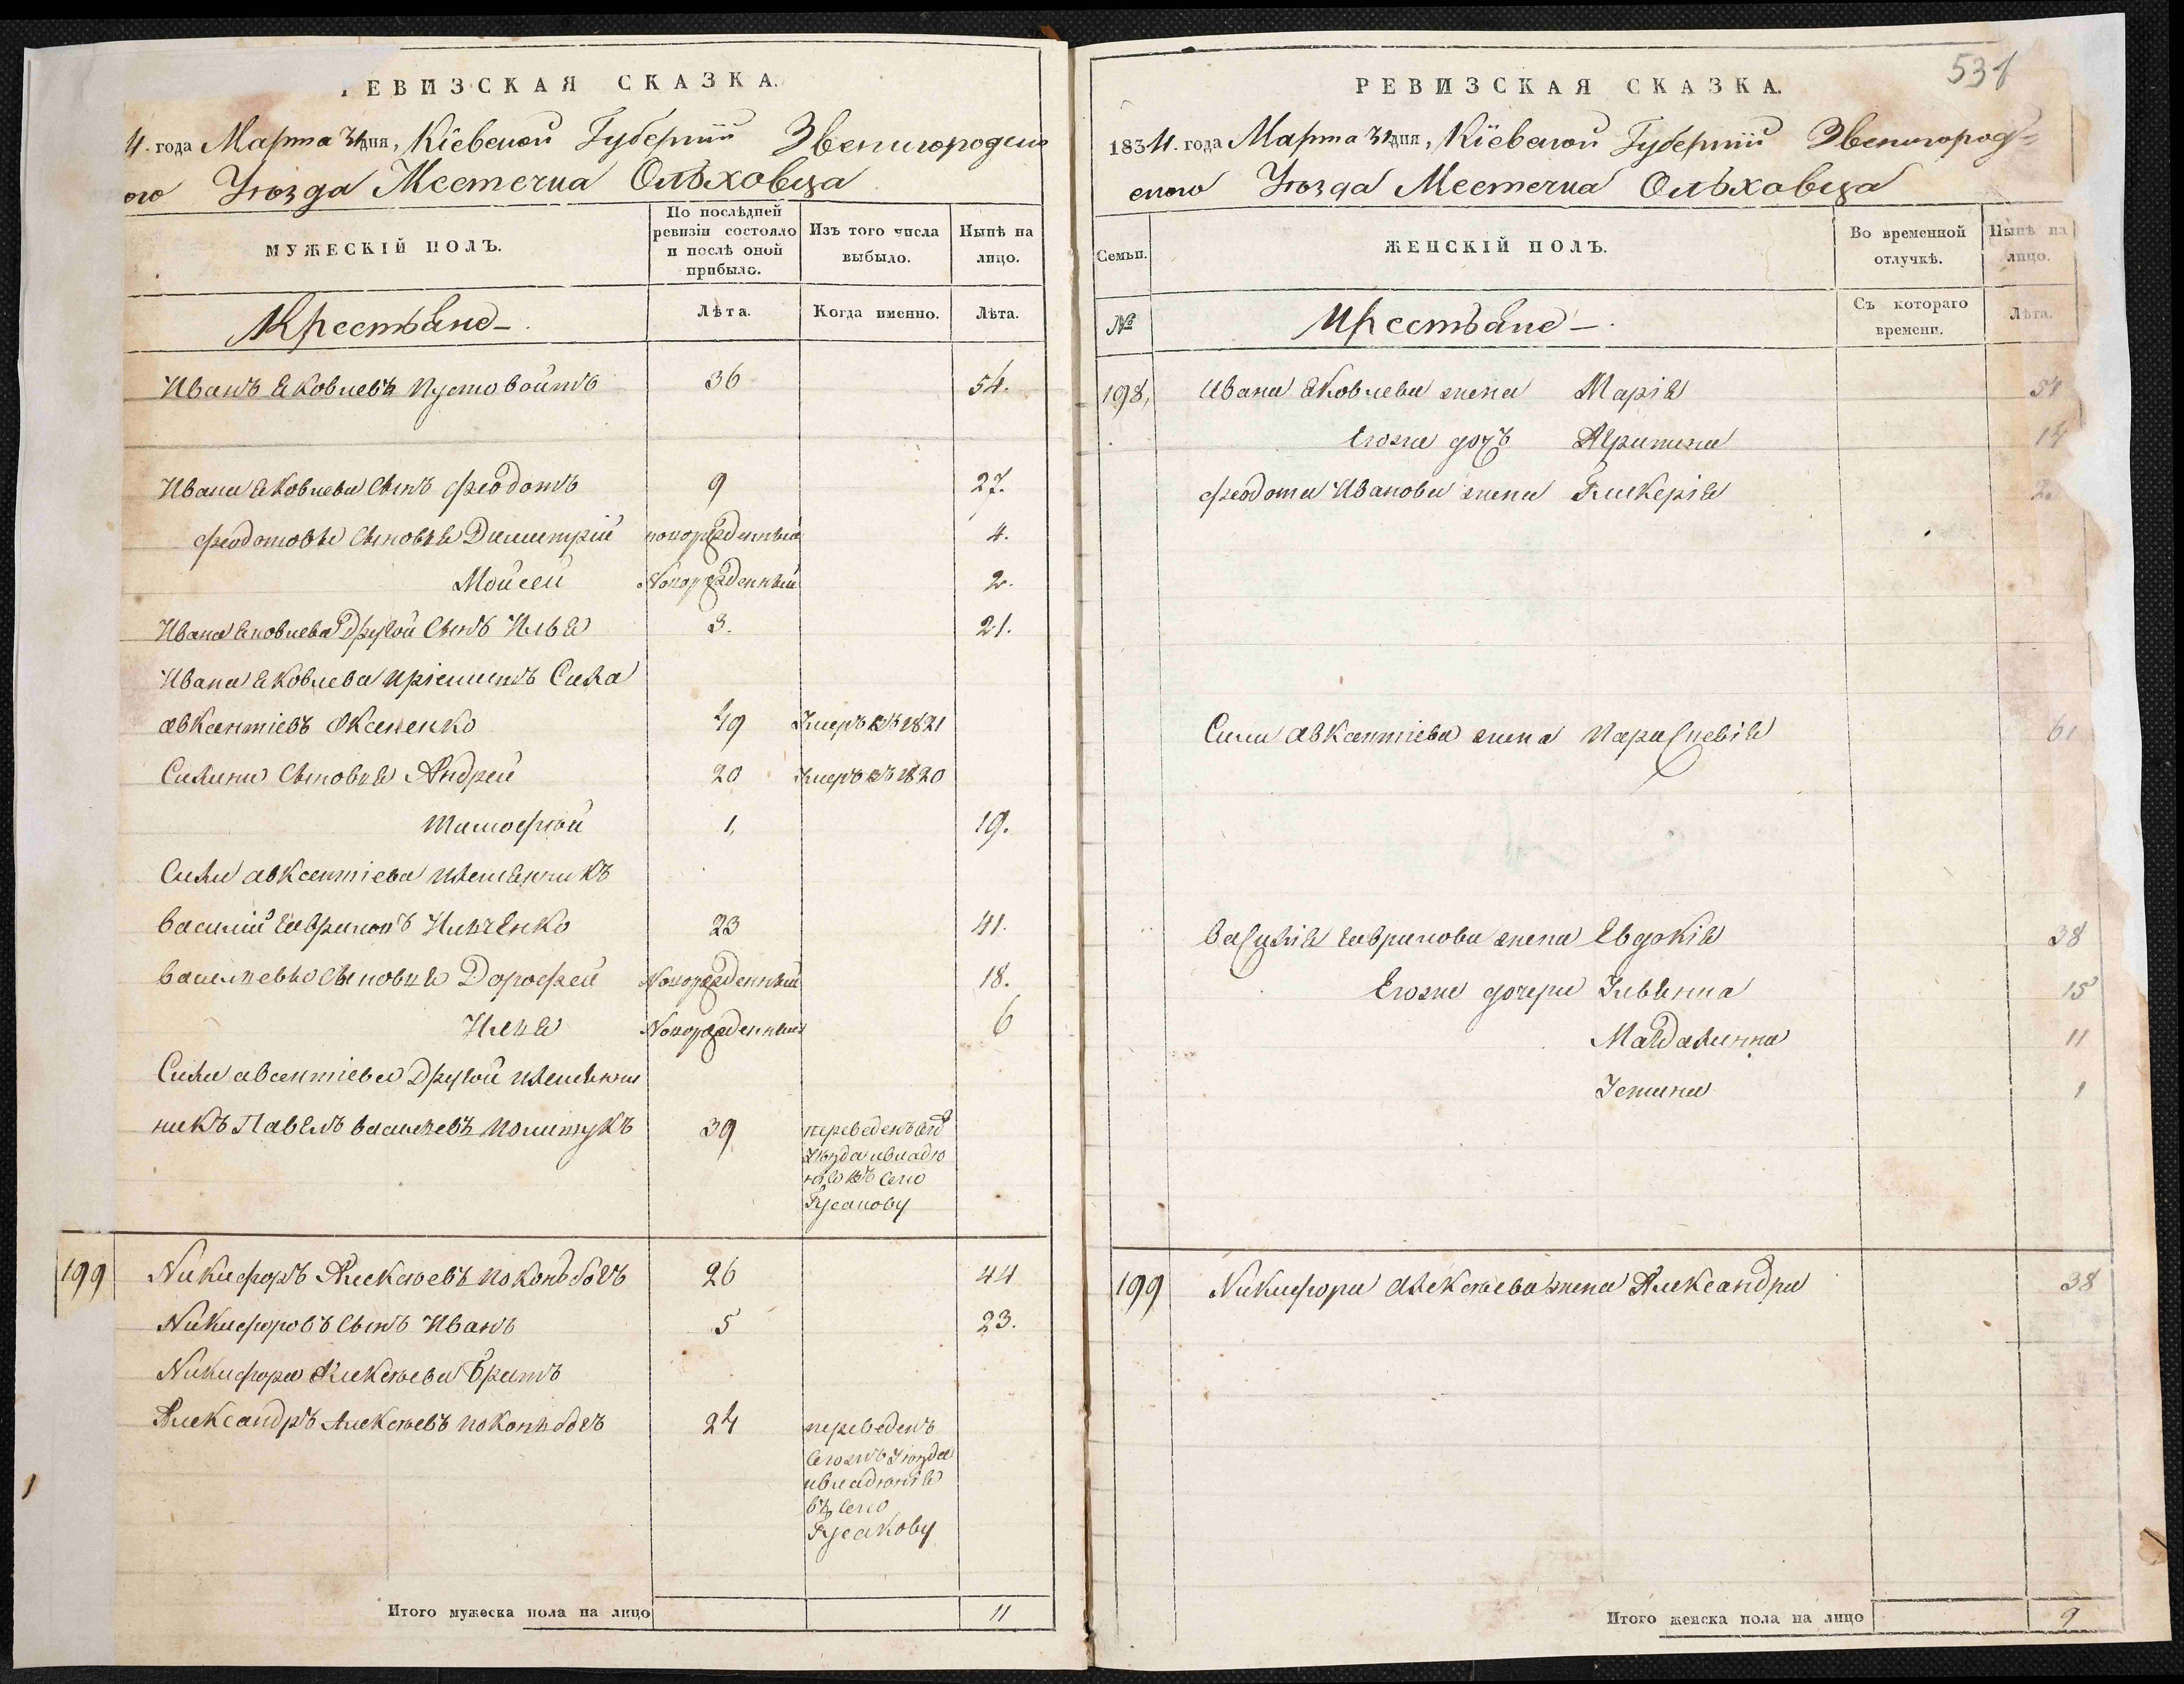 РЕВИЗСКАЯ СКАЗКА.
4. года Марта 31 дня, Кіевской Губерніи Звенигородск
ого Уѣзда Местечка Ольховца
МУЖЕСКІЙ ПОЛЪ.
По послѣдней ревизіи состояло и послѣ оной прибыло.
Изъ того числа выбыло.
Нынѣ на лицо.
Крестьяне
Лѣта.
Когда именно.
Лѣта.
Иванъ Яковлевъ Пустовойтъ 36 54.
Ивана Яковлева Сынъ Феодотъ 9 27.
Феодотовы Сыновья Димитрій новорожденный 4.
Мойсей Новорожденный 2.
Ивана Яковлева Другой Сынъ Илья 3. 21.
Ивана Яковлева Пріемышъ Сила
Авксентіевъ Оксененко 49 Умеръ въ 1821
Силины Сыновья Андрей 20 Умеръ въ 1820
Тимофѣй 1, 19.
Силы Авксентіева племянникъ
Василій Гавриловъ Ильченко 23 41.
Васильевы Сыновья Дорофей Новорожденный 18.
Илья Новорожденный 6
Силы Авсентіева Другой племянни
никъ Павелъ Васильевъ Полищукъ 39 переведенъ Сгоже
Уѣзда ивладѣ
нія въ село
Гусакову
199 Никифоръ Алексѣевъ Поконьбогъ 26 44
Никифоровъ Сынъ Иванъ 5 23.
Никифора Алексѣева Братъ
Александръ Алексѣевъ Поконьбогъ 24 переведенъ
Сгожъ Уѣзда
ивладѣнія
въ село
Гусакову
Итого мужеска пола на лицо 11
531
РЕВИЗСКАЯ СКАЗКА.
1834. года Марта 31 дня, Кіевской Губерніи Звенигород=
ского Уѣзда Местечка Ольховца
Семьи.
ЖЕНСКІЙ ПОЛЪ.
Во временной отлучкѣ.
Нынѣ на лицо.
№
Крестьяне
Съ котораго времени.
Лѣта.
198, Ивана Яковлева жена Марія 54
Егоже дочь Агрипина 14
Феодота Иванова жена Гликерія
Силы Авксентіева жена Параскевія 61
Василія Гаврилова жена Евдокія 38
Егоже дочери Ульянна 15
Магдалинна 11
Устина 1
199 Никифора Алексѣева жена Александра 38
Итого женска пола на лицо 9